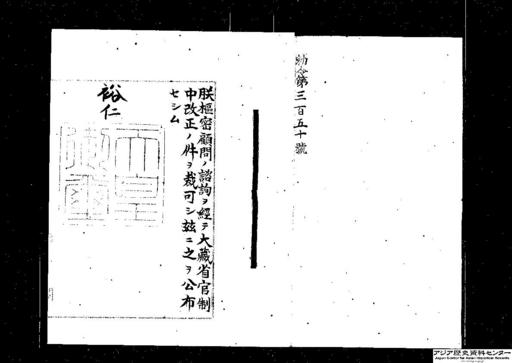 勅令第三百五十號
朕樞密顧問ノ諮詢ヲ經テ大藏省官制
中改正ノ件ヲ裁可シ茲ニ之ヲ公布
セシム
裕仁
天皇
御璽
アジア歴史資料センター
Japan Center for Asian Historical Records